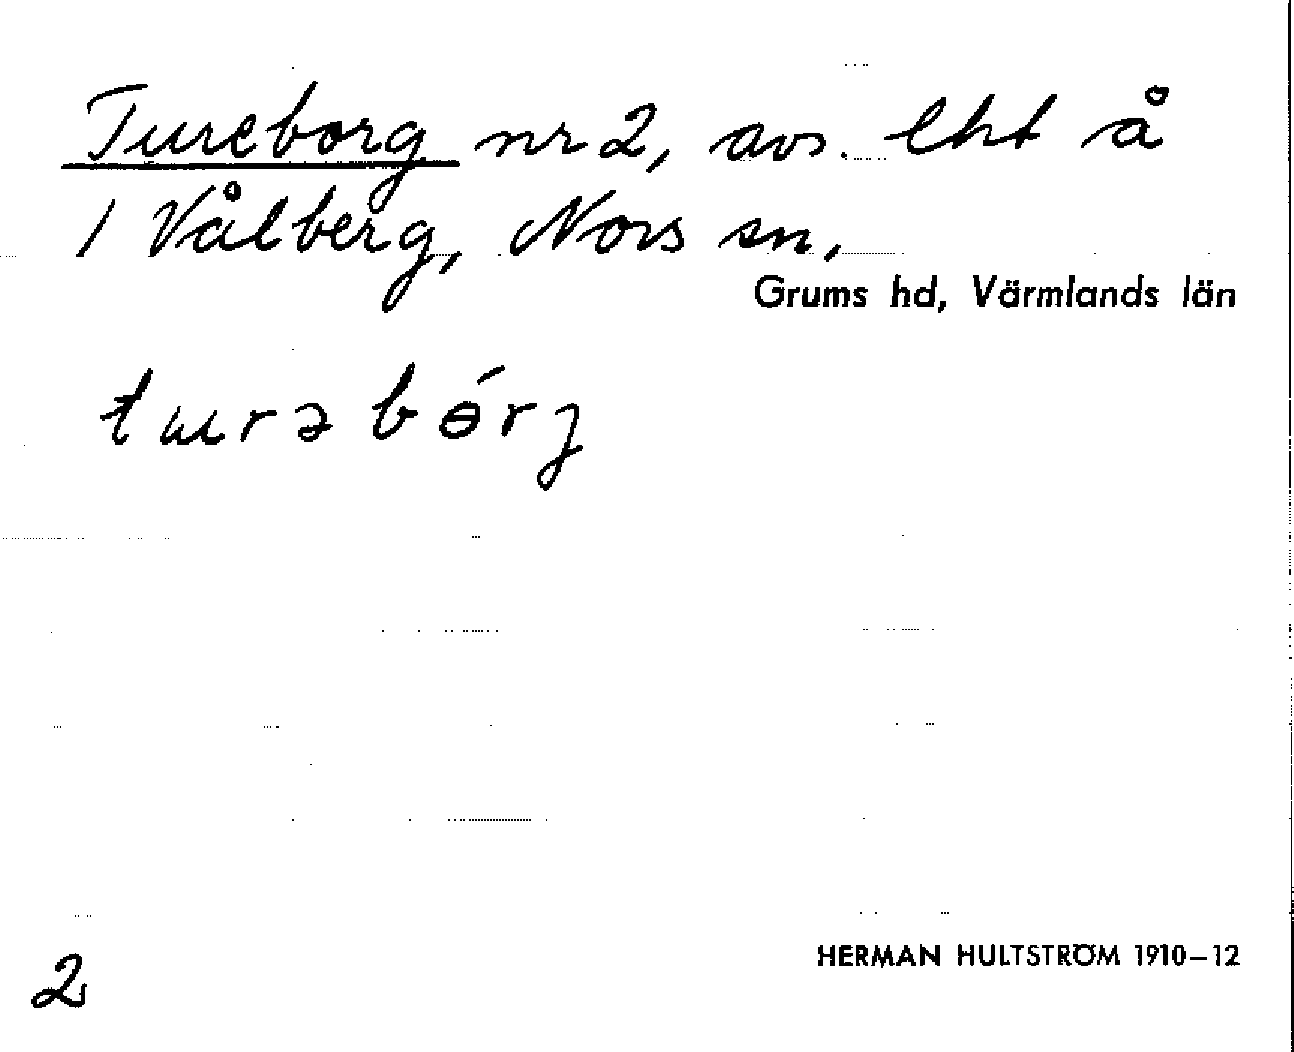 Tureborg nr 2, avs. lht å
1 Vålberg, Nors sn,
Grums hd, Värmlands län
turəbɵ́rj
2
HERMAN HULTSTRÖM 1910–12